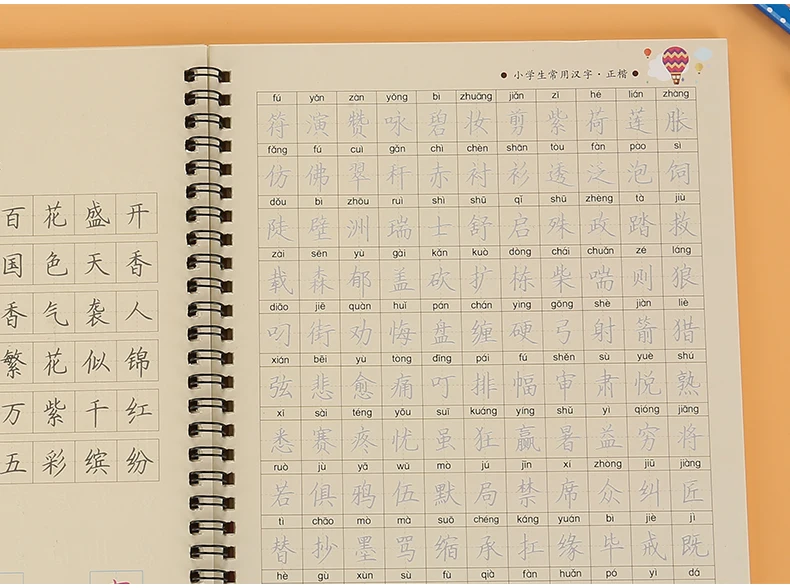 百花盛开
国色天香
香气袭人
繁花似锦
万紫千红
五彩缤纷
● 小学生常用汉字·正楷 ●
fú yǎn zàn yǒng bì zhuāng jiǎn zǐ hé lián zhàng
符演赞咏碧妆剪紫荷莲胀
fǎng fú cuì gǎn chì chèn shān tòu fàn pào sì
仿佛翠秆赤衬衫透泛泡饲
dǒu bì zhōu ruì shì shū qǐ shū zhèng tà jiù
陡壁洲瑞士舒启殊政踏救
zài sēn yù gài kǎn kuò dòng chái chuǎn zé láng
载森郁盖砍扩栋柴喘则狼
diāo jiē quàn huǐ pán chán yìng gōng shè jiàn liè
叼街劝悔盘缠硬弓射箭猎
xián bēi yù tòng dīng pái fú shěn sù yuè shú
弦悲愈痛叮排幅审肃悦熟
xī sài téng yōu suī kuáng yíng shǔ yì qióng jiāng
悉赛疼忧虽狂赢暑益穷将
ruò jù yā wǔ mò jú jīn xí zhòng jiū jiàng
若俱鸦伍默局禁席众纠匠
tì chāo mò mà suō chéng káng yuán bì jiè jì
替抄墨骂缩承扛缘毕戒既
hè gù xùn sù fú qià fàn huǎn pó yì dá